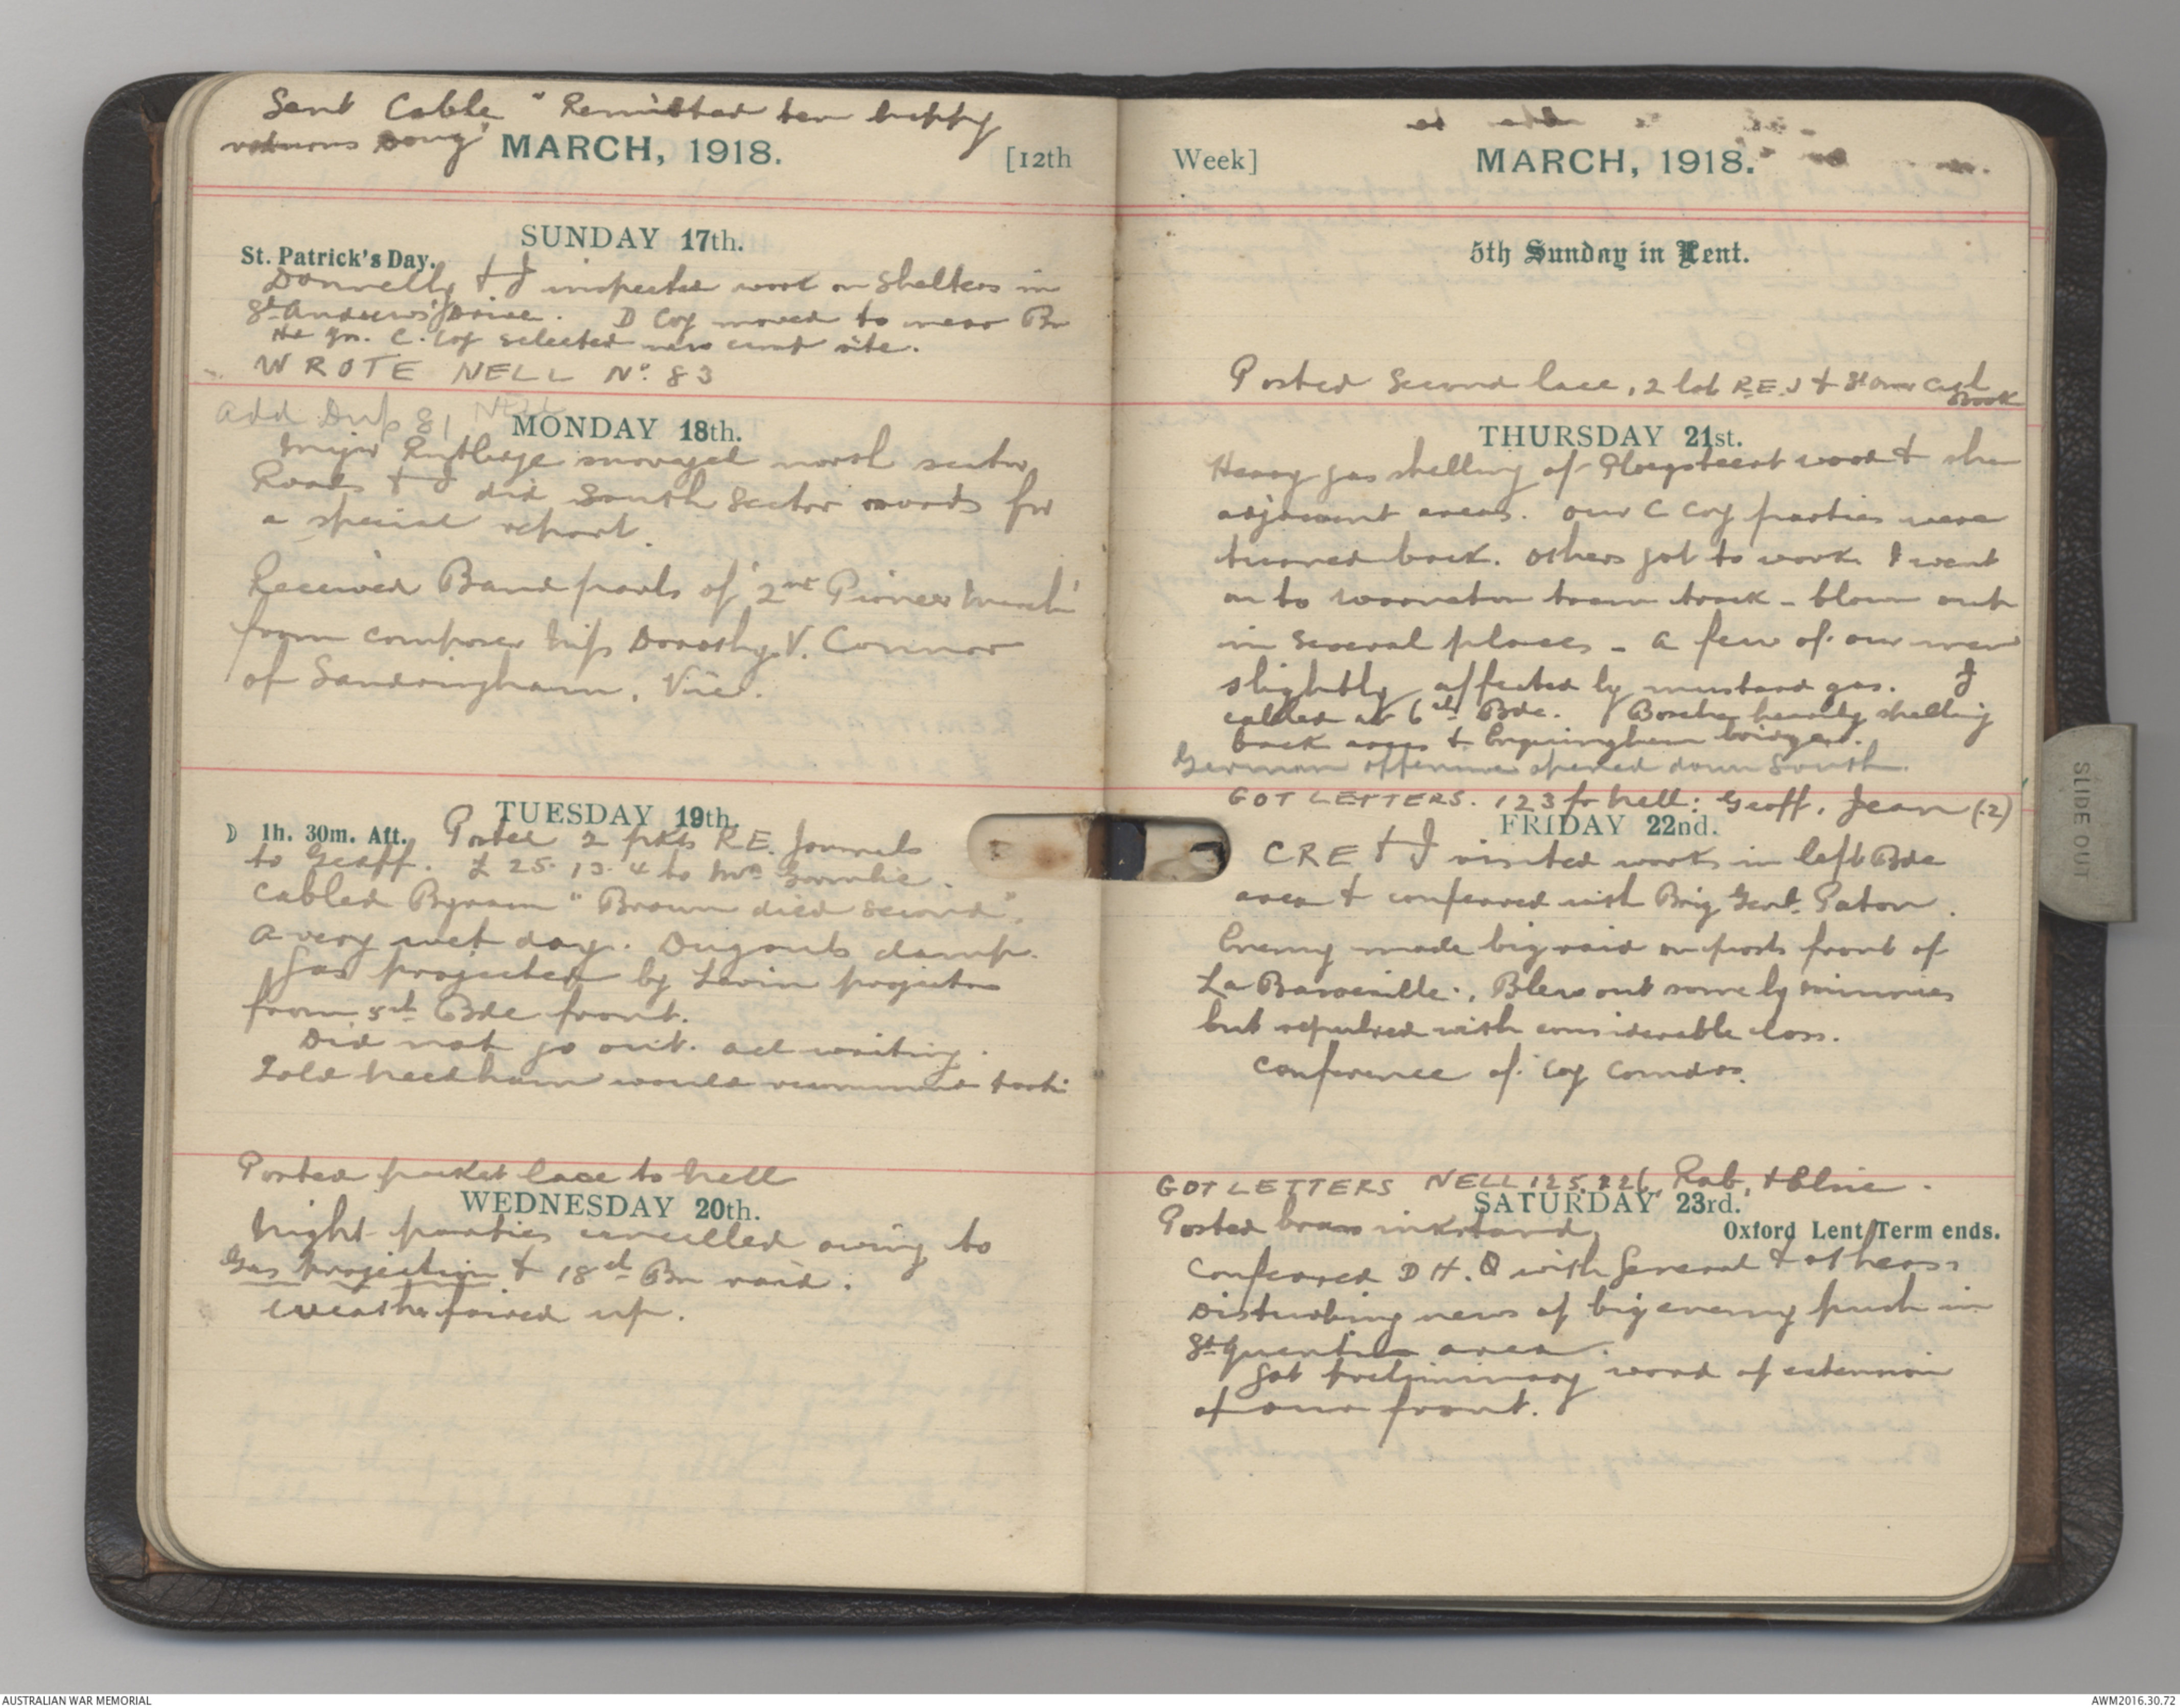 Sent Cable "Remitted ten happy
returns Doug"
MARCH, 1918. [12th
SUNDAY 17th.
St. Patrick's Day.
Donnelly & I inspected work on shelters in
St Andrews Drive. D Coy moved to near Bn
Hd Qrs. C. Coy selected new camp site.
WROTE NELL No. 83
add Dup 81 Nell
MONDAY 18th.
Major Rutledge surveyed north sector
Roads & I did South Sector roads for
a special report.
Received Band parts of '2nd Pioneer March'
from composer Miss Dorothy V. Connor
of Sandringham, Vic.
TUESDAY 19th.
☽ 1h. 30m. Aft. Posted 2 pkts R.E. Journals
to Geoff. £25.13.4 to Mrs
Cabled Byram "Brown died second".
A very wet day. Dugouts damp.
Gas projected by Levin projectors
from 5th Bde front.
Did not go out. all writing.
Told Needham would recommend
Posted packet lace to Nell
WEDNESDAY 20th.
Night parties cancelled owing to
Gas projection & 18th Bn raid.
Weather faired up.
Week] MARCH, 1918.
5th Sunday in Lent.
Posted second lace, 2 lot R.E.J & St Omer Cash
Book
THURSDAY 21st.
Heavy gas shelling of Ploegsteert wood & other
adjacent areas. Our C Coy parties were
turned back. Others got to work. I went
on to Warneton tram track - blown out
in several places - a few of our men
slightly affected by mustard gas. I
called at 6th Bde. Bosche heavily shelling
back areas & Erquinghem bridges.
German offensive opened down South.
GOT LETTERS. 123 fr Nell: Geoff, Jean (2)
FRIDAY 22nd.
CRE & I visited works in left Bde
area & conferred with Brig Genl. Paton.
Enemy made big raid on posts front of
La Basseville. Blew out some by minnies
but repulsed with considerable loss.
Conference of Coy Comdrs.
GOT LETTERS NELL 125, 126, Rab, & Elsie.
SATURDAY 23rd.
Posted brass inkstand.
Oxford Lent Term ends.
Conferred D H.Q with General & others.
Disturbing news of big enemy push in
St Quentin area.
Got preliminary word of extension
of our front.
SLIDE OUT
AUSTRALIAN WAR MEMORIAL
AWM2016.30.72